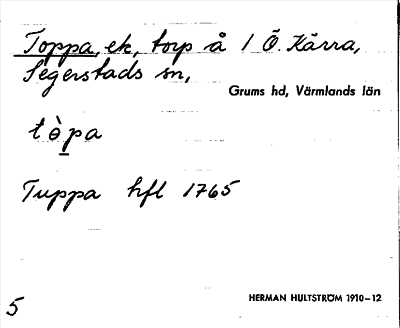 Toppa, ek, torp å 1 Ö. Kärra,
Segerstads sn,
Grums hd, Värmlands län
tòpa
Tuppa hfl 1765
HERMAN HULTSTRÖM 1910-12
5